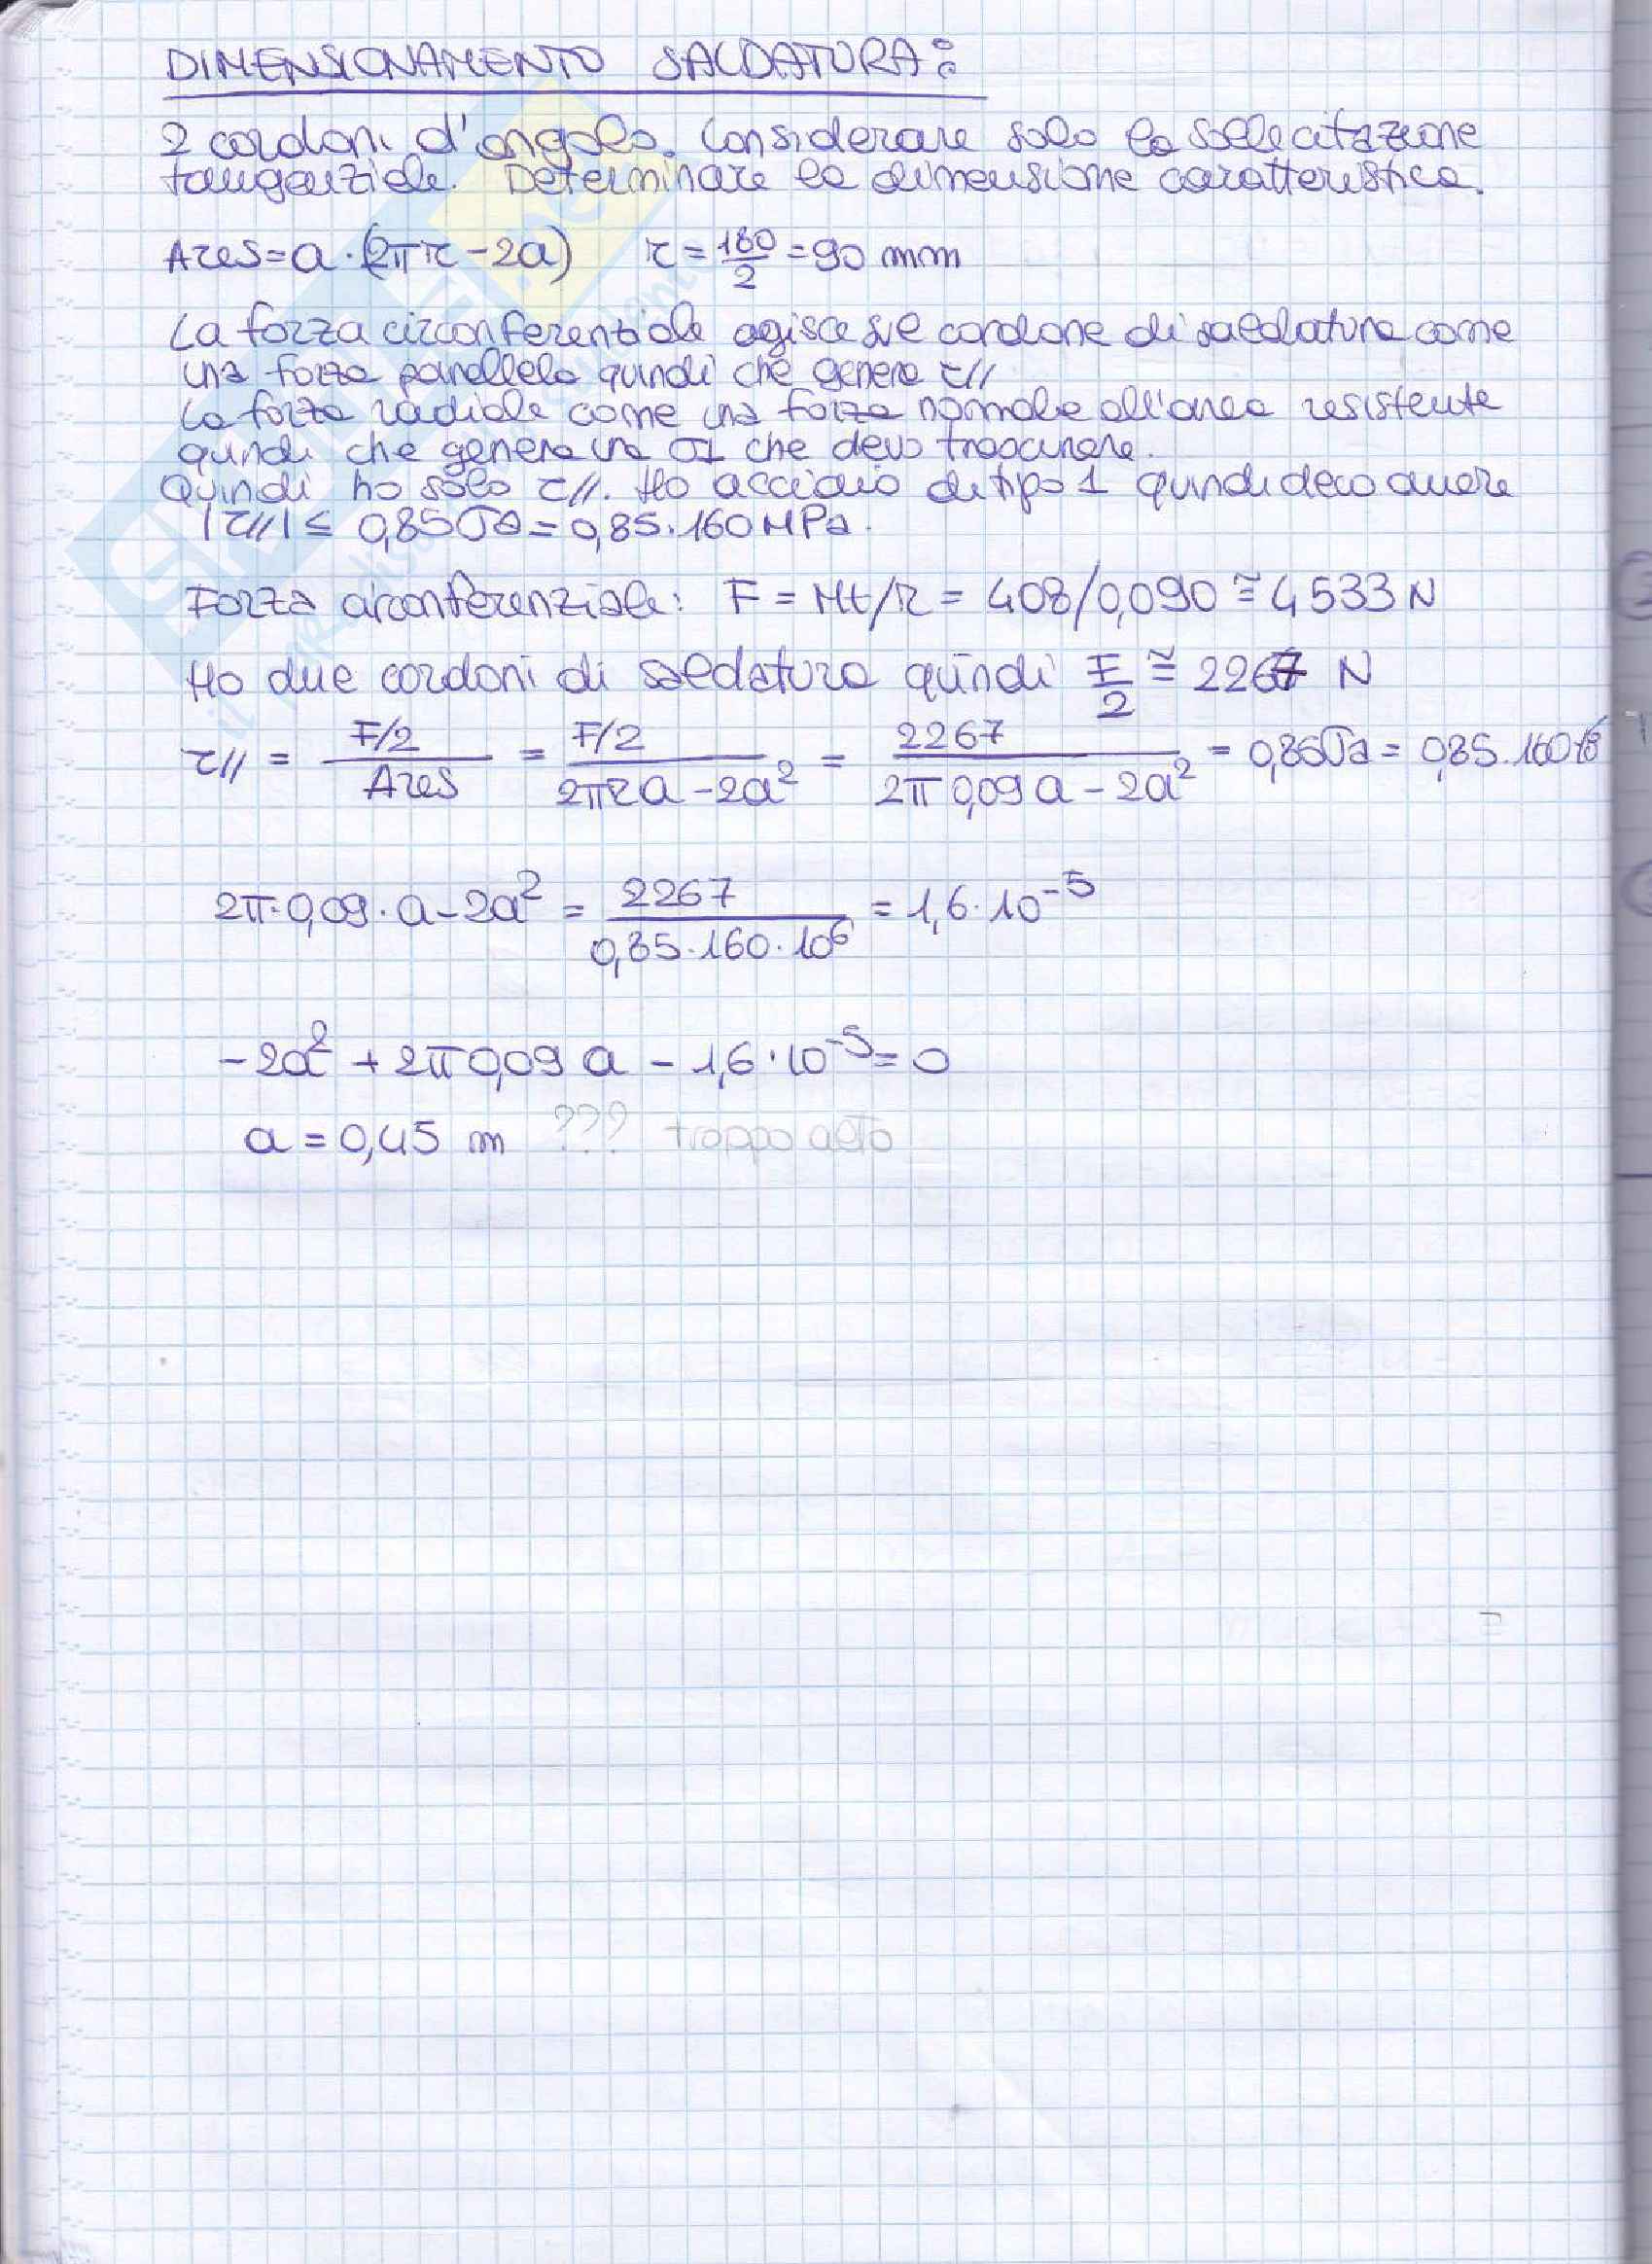 DIMENSIONAMENTO SALDATURA:
2 cordoni d'angolo. Considerare solo la sollecitazione
tangenziale. Determinare la dimensione caratteristica.
Ares = a · (2πr - 2a) r = 180/2 = 90 mm
La forza circonferenziale agisce sul cordone di saldatura come
una forza parallela quindi che genera τ//
La forza radiale come una forza normale all'area resistente
quindi che genera una σ⊥ che devo trascurare.
Quindi ho solo τ//. Ho acciaio di tipo 1 quindi devo avere
|τ//| ≤ 0,85σa = 0,85·160 MPa.
Forza circonferenziale: F = Mt/r = 408/0,090 ≅ 4533 N
Ho due cordoni di saldatura quindi F/2 ≅ 2267 N
τ// = (F/2)/Ares = (F/2)/(2πra - 2a²) = 2267/(2π 0,09 a - 2a²) = 0,85σa = 0,85·160·10⁶
2π·0,09·a - 2a² = 2267/(0,85·160·10⁶) = 1,6·10⁻⁵
-2a² + 2π0,09 a - 1,6·10⁻⁵ = 0
a = 0,45 m ??? troppo alto